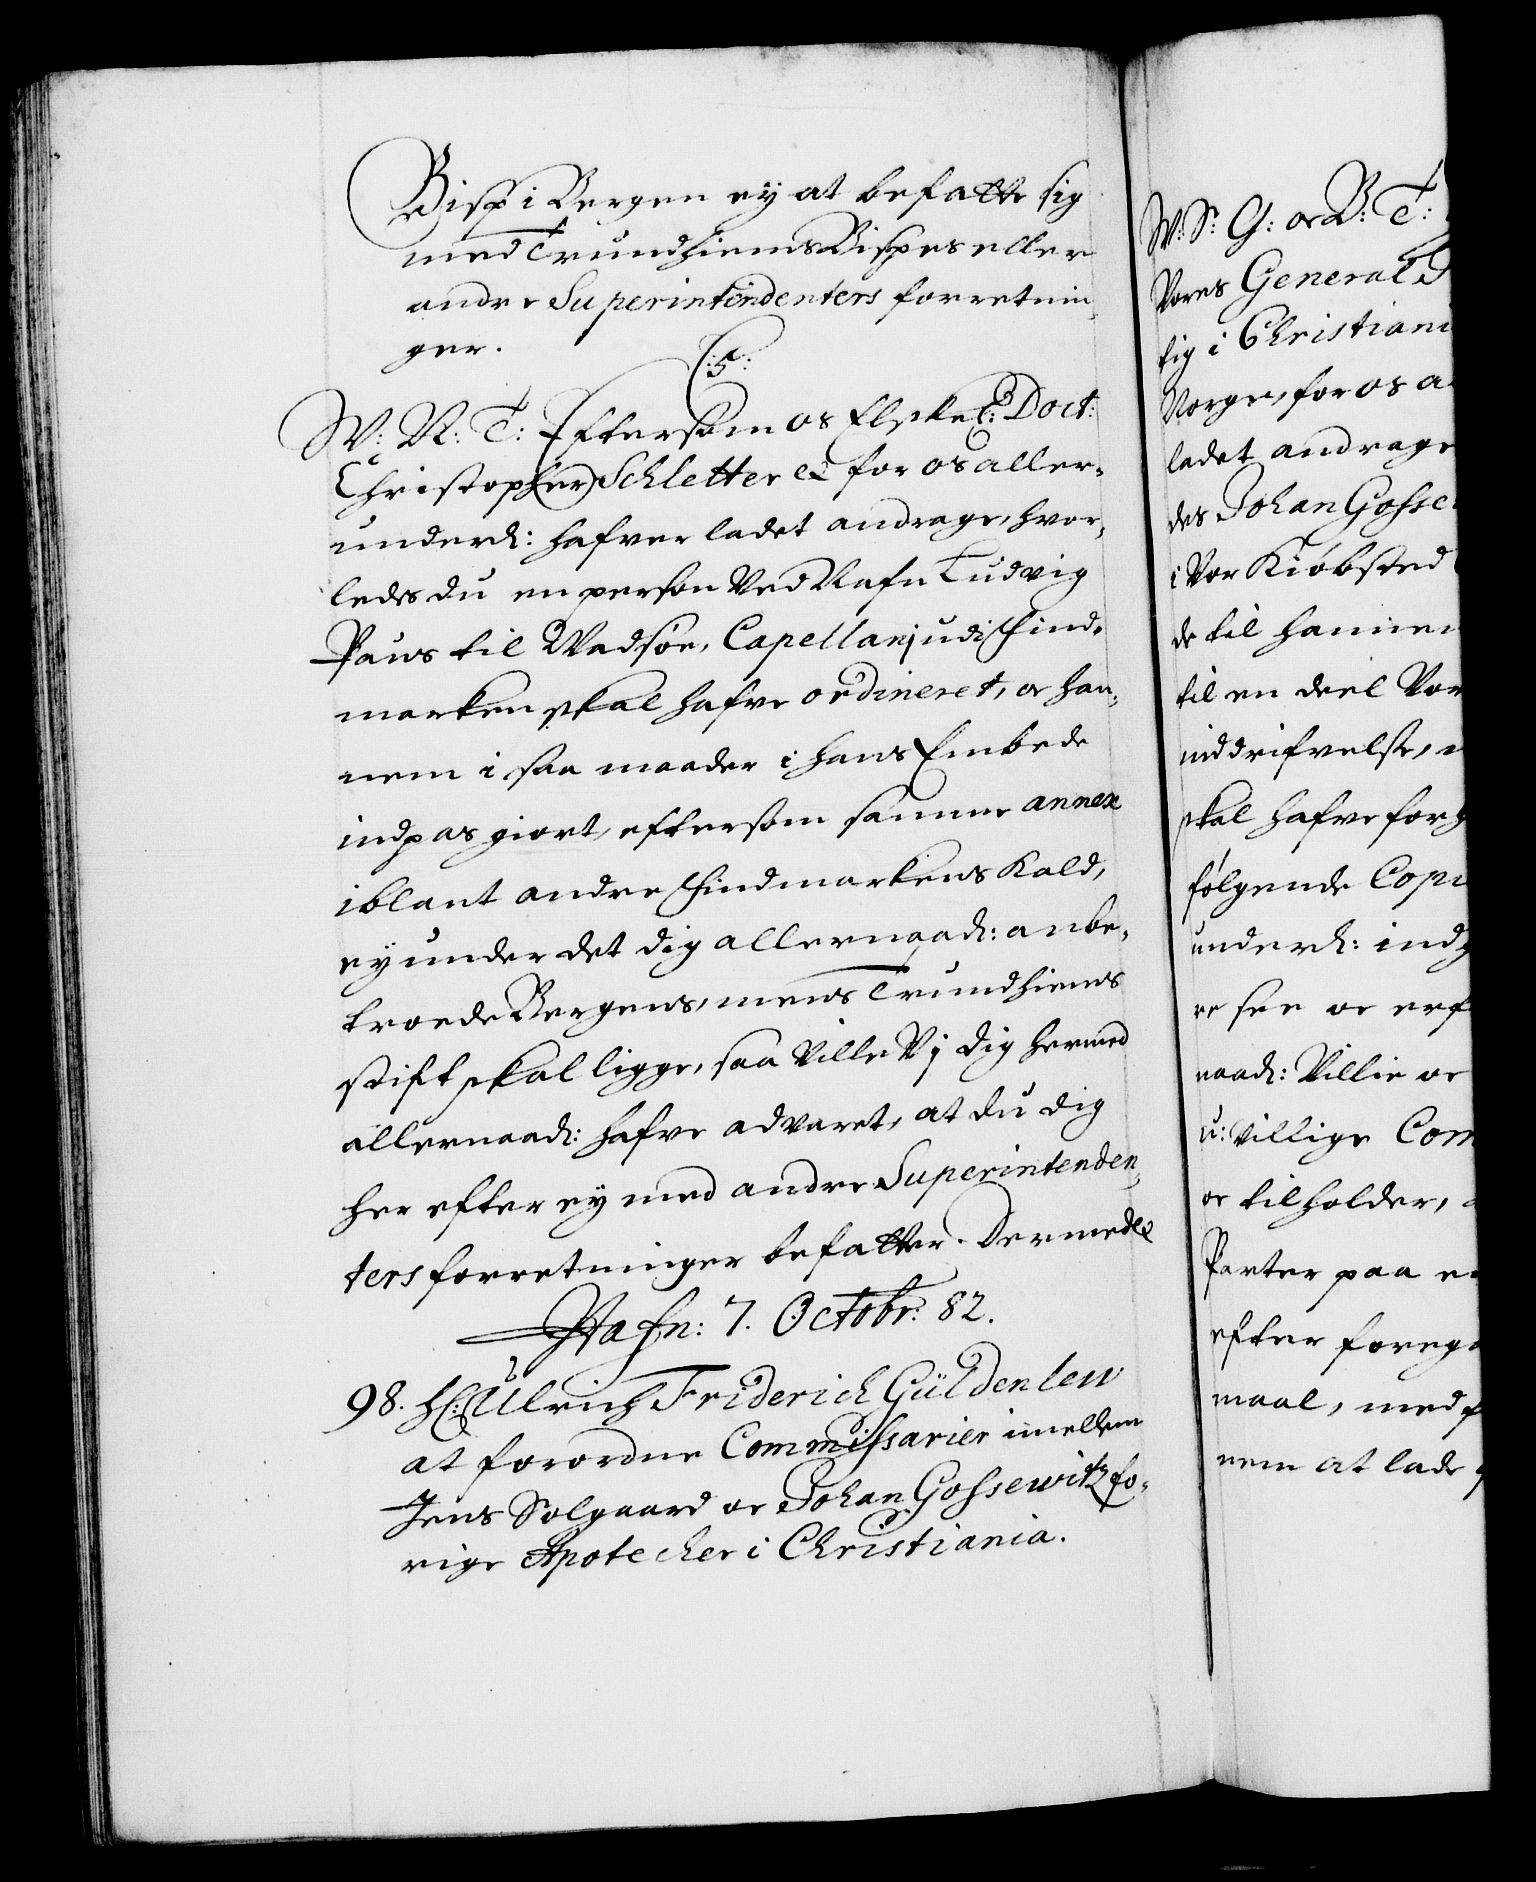 Bisp i Bergen ey at befatte sig
med Trundhiems Bispes eller
andre Superintendenters forretnin
ger.
C:5:
W: N: T: Eftersom os Elskel: Doct:
Christopher Schletter etc for os aller-
underd: hafver ladet andrage, hvor-
ledes du en person Ved Nafn Ludvig
Paus til Wadsøe, Capellanj udi Find-
marken skal hafve ordineret, oc han-
nem i saa maader i hans Embede
indpas giort, eftersom samme annex
iblant andre Findmarkens Kald,
ey under det dig allernaad: anbe-
troede Bergens, mens Trundhiems
stift skal ligge, saa Ville Vj dig hermed
allernaad: hafve advaret, at du dig
her efter ey med andre Superintenden-
ters forretninger befatter. Dermed etc
Hafn: 7. Octobr: 82.
98. H: Ulrich Friderich Güldenlew
at forordne Commissarier imellem
Jens Solgaard oc Johan Gossewitz fo-
rige Apotecher i Christiania.
W: S: G: oc B: T:
Vores General
tig i Christiani
Norge, for os a
ladet andrage
des Johan Gosse
i Vor Kiøbsted
de til hannem
til en deel Vor
inddrifvelse,
skal hafve forg
følgende Copi
underd: indg
re see oc erf
naad: Villie oc
u: Villige Com
oc tilholder,
Parter paa e
efter foreg
maal, med
nem at lade